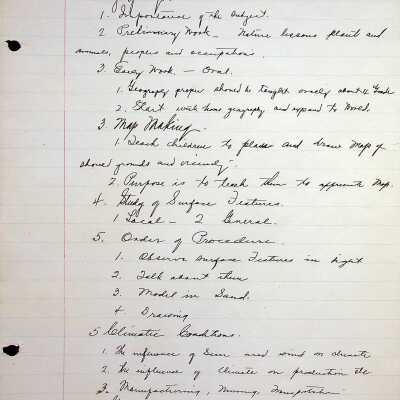 1. Importance of the subject.
2. Preliminary Work - Nature lessons plant and
animals, peoples and occupations.
3. Early Work. - Oral.
1. Geography proper should be taught orally about 4 Grade
2. Start with home geography and expand to World.
3. Map Making.
1. Teach children to place and draw map of
school grounds and vicinity.
2. Purpose is to teach them to appreciate map.
4. Study of Surface Features.
1 Local - 2 General.
5. Order of Procedure.
1. Observe surface Features in sight
2. Talk about them
3. Model in Sand.
4 Drawing
5 Climatic Conditions.
1. The influence of Sun and wind on climate
2. The influence of Climate on production etc
3. Manufacturing, Mining, Transportation